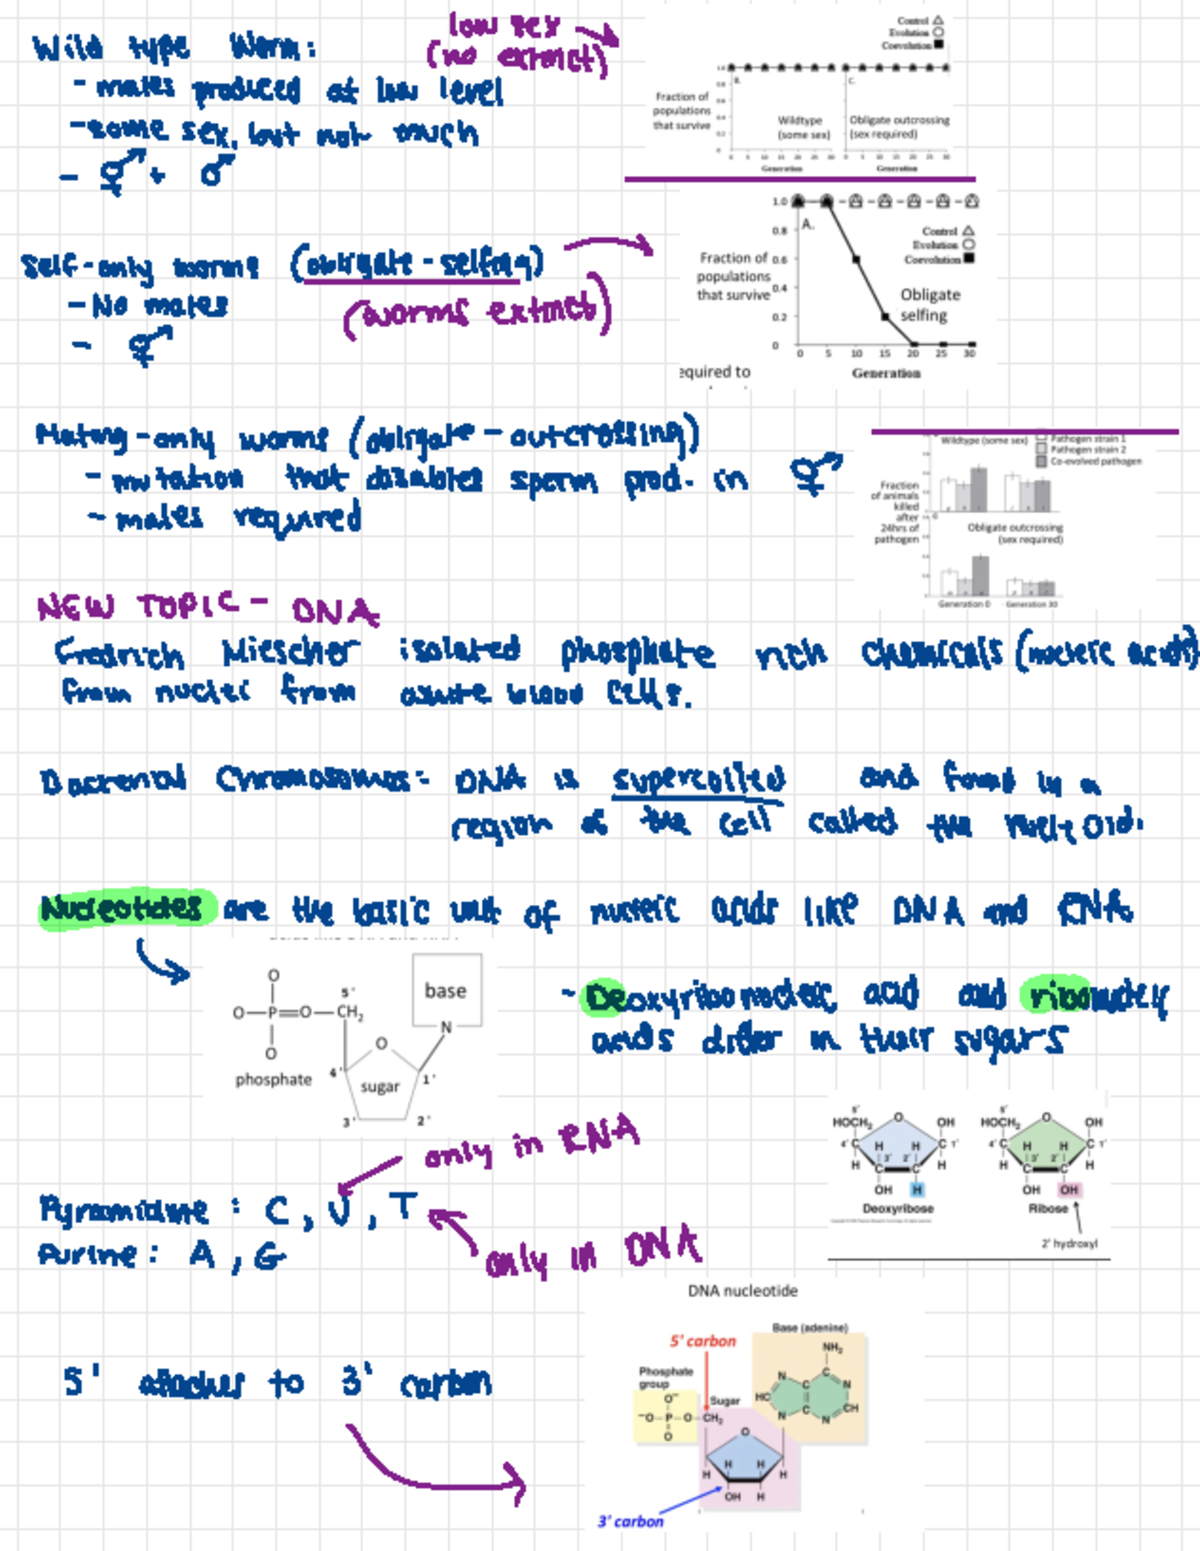 Wild type Worm:
- males produced at low level
- some sex, but not much
- ⚥ + ♂
low sex
(no extinct)
Control △
Evolution ○
Coevolution ■
1.0
0.8
0.6
0.4
0.2
0
B.
C.
Fraction of
populations
that survive
Wildtype
(some sex)
Obligate outcrossing
(sex required)
0 5 10 15 20 25 30 0 5 10 15 20 25 30
Generation Generation
Self-only worms (obligate-selfing)
- No males
- ⚥
(worms extinct)
1.0
0.8
0.6
0.4
0.2
0
A.
Control △
Evolution ○
Coevolution ■
Fraction of
populations
that survive
Obligate
selfing
0 5 10 15 20 25 30
Generation
equired to
Mating-only worms (obligate-outcrossing)
- mutation that disables sperm prod. in ⚥
- males required
Wildtype (some sex)
Pathogen strain 1
Pathogen strain 2
Co-evolved pathogen
Fraction
of animals
killed
after
24hrs of
pathogen
Obligate outcrossing
(sex required)
Generation 0 Generation 30
NEW TOPIC - DNA
Fredrich Miescher isolated phosphate rich chemicals (nucleic acids)
from nuclei from blood cells.
Bacterial Chromosomes: DNA is supercoiled and found in a
region of the cell called the nucleoid.
Nucleotides are the basic unit of nucleic acids like DNA and RNA
O
O—P=O—CH₂
O
phosphate
5'
base
N
O
4'
sugar
1'
3' 2'
- Deoxyribonucleic acid and ribonucleic
acids differ in their sugars
5'
HOCH₂ O OH
4' C H H C 1'
H 3' 2' H
C C
OH H
Deoxyribose
5'
HOCH₂ O OH
4' C H H C 1'
H 3' 2' H
C C
OH OH
Ribose
2' hydroxyl
only in RNA
Pyramidine: C, U, T
Purine: A, G
only in DNA
5' attaches to 3' carbon
DNA nucleotide
5' carbon
Base (adenine)
NH₂
Phosphate
group
Sugar
O⁻
⁻O—P—O—CH₂
O
N C N
HC C CH
N N
O
H H H H
OH H
3' carbon